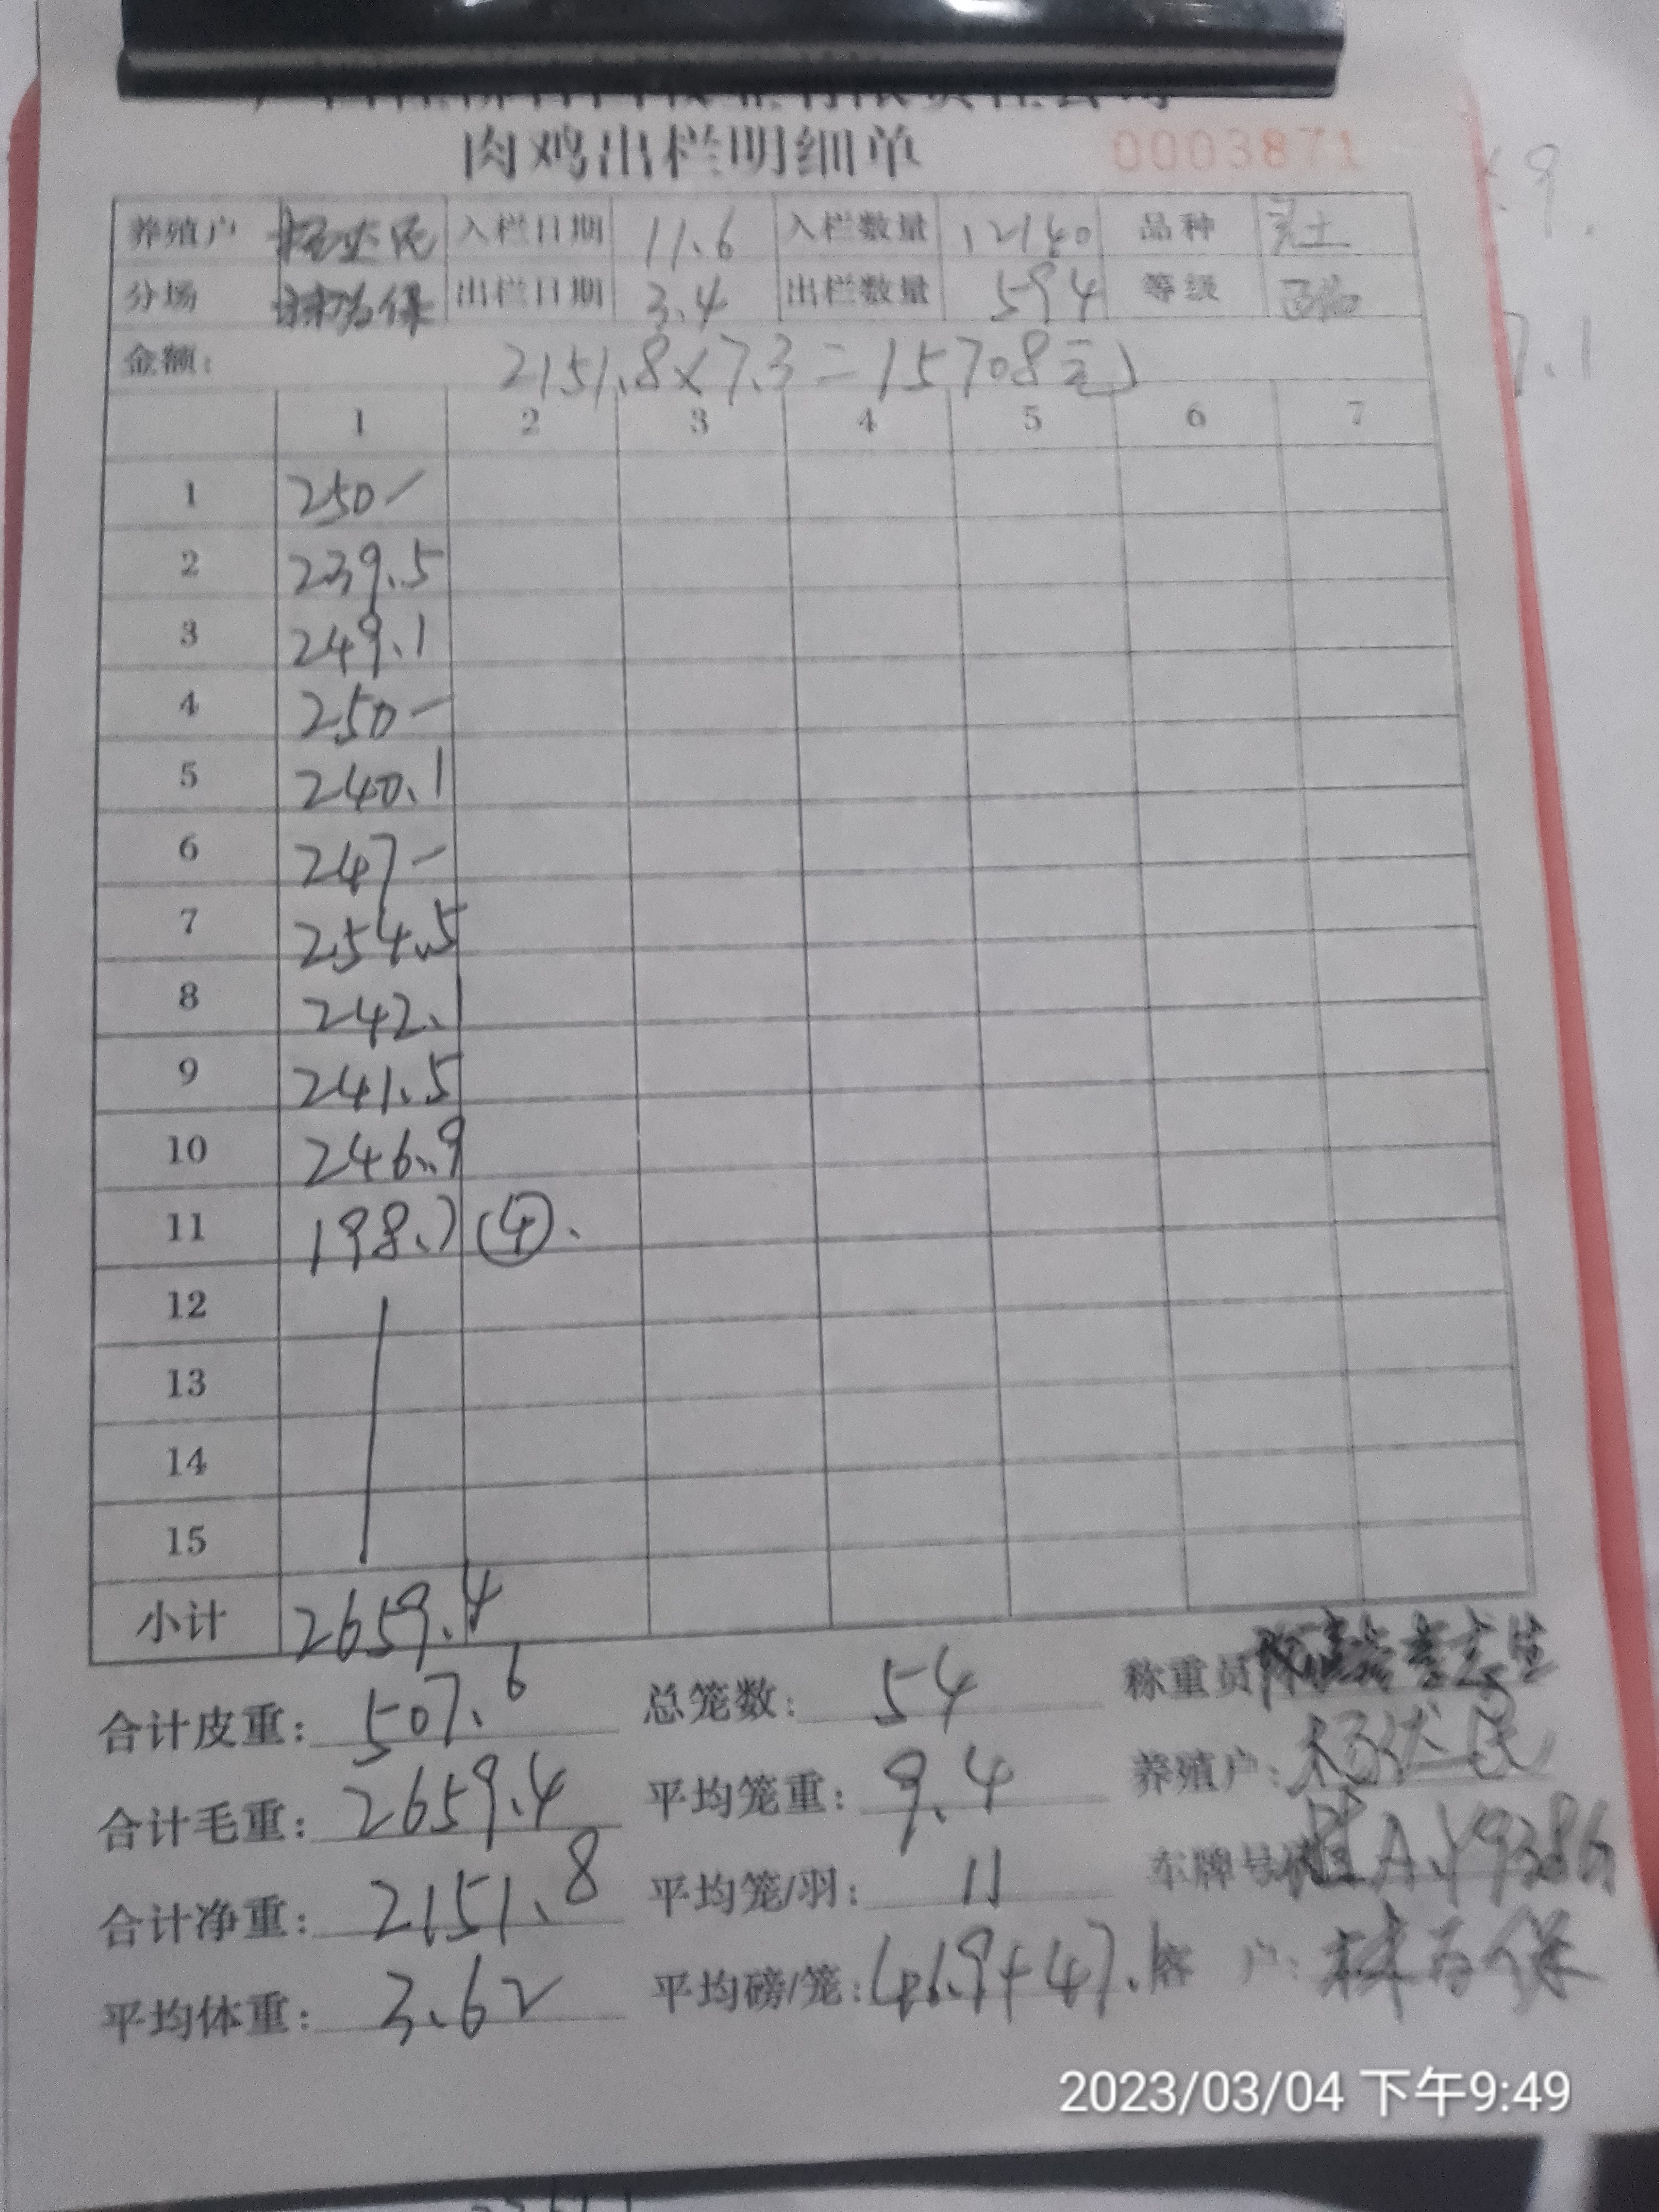 肉鸡出栏明细单 0003871
养殖户 入栏日期 11.6 入栏数量 12140 品种 土
分场 林百保 出栏日期 3.4 出栏数量 594 等级
金额: 2151.8×7.3=15708元
1 2 3 4 5 6 7
1 250-
2 239.5
3 249.1
4 250-
5 240.1
6 247-
7 254.5
8 242.1
9 241.5
10 246.9
11 198.7 (4).
12
13
14
15
小计 2659.4
合计皮重: 507.6 总笼数: 54 称重员 李志生
合计毛重: 2659.4 平均笼重: 9.4 养殖户:
合计净重: 2151.8 平均笼/羽: 11 车牌号 A.Y938G
平均体重: 3.62 平均磅/笼: 46.9+47.1 客 户: 林百保
2023/03/04 下午9:49